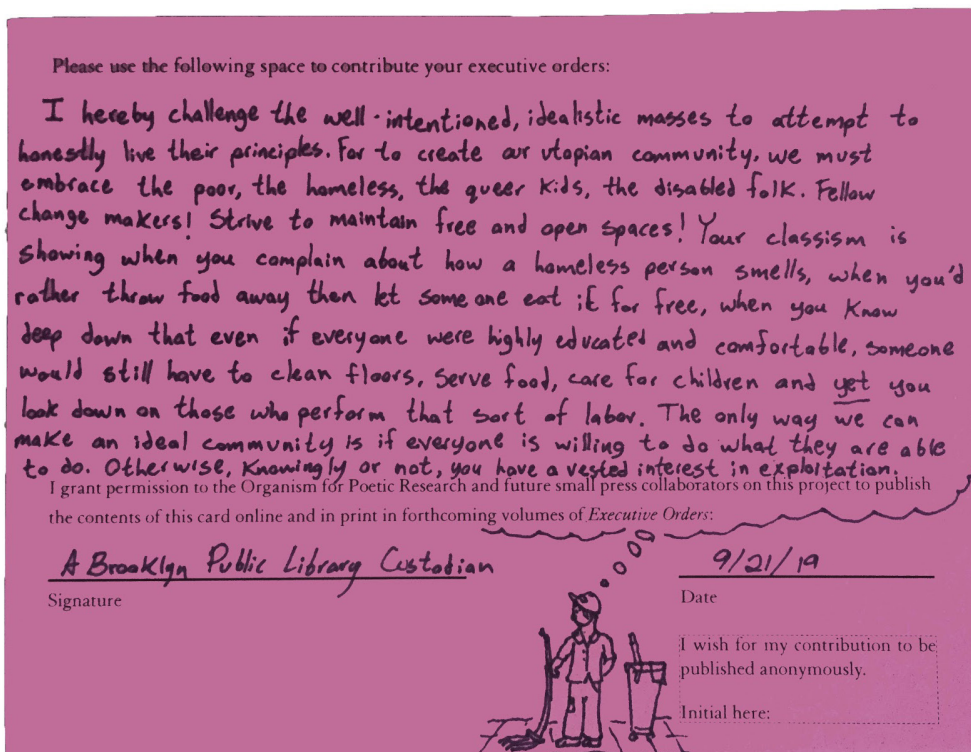 Please use the following space to contribute your executive orders:
I hereby challenge the well-intentioned, idealistic masses to attempt to
honestly live their principles. For to create our utopian community, we must
embrace the poor, the homeless, the queer kids, the disabled folk. Fellow
change makers! Strive to maintain free and open spaces! Your classism is
showing when you complain about how a homeless person smells, when you'd
rather throw food away then let someone eat it for free, when you know
deep down that even if everyone were highly educated and comfortable, someone
would still have to clean floors, serve food, care for children and yet you
look down on those who perform that sort of labor. The only way we can
make an ideal community is if everyone is willing to do what they are able
to do. Otherwise, knowingly or not, you have a vested interest in exploitation.
I grant permission to the Organism for Poetic Research and future small press collaborators on this project to publish
the contents of this card online and in print in forthcoming volumes of Executive Orders:
A Brooklyn Public Library Custodian
9/21/19
Signature
Date
I wish for my contribution to be
published anonymously.
Initial here: